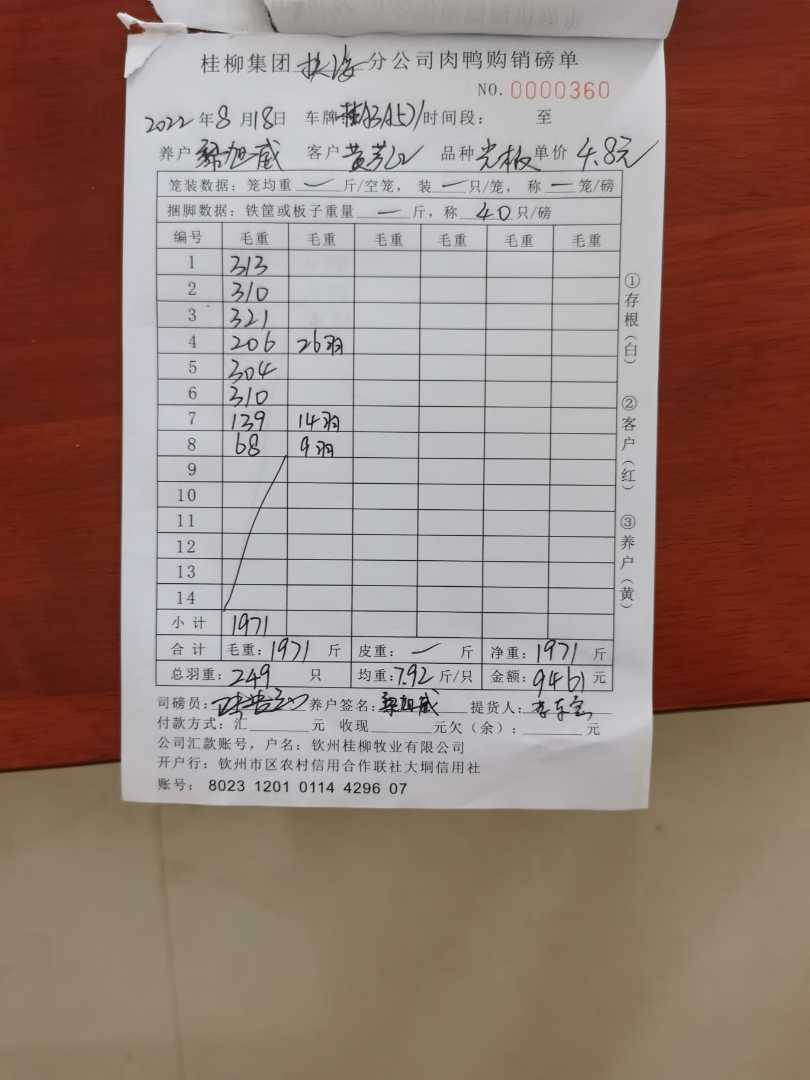 桂柳集团 分公司肉鸭购销磅单
NO. 0000360
2022年8月18日 车牌: 时间段: 至
养户 旭威 客户 黄芳 品种 光板 单价 4.8元
笼装数据: 笼均重 一 斤/空笼, 装 一 只/笼, 称 一 笼/磅
捆脚数据: 铁筐或板子重量 一 斤, 称 40 只/磅
编号 毛重 毛重 毛重 毛重 毛重 毛重
1 313
2 310
3 321
4 206 26羽
5 304
6 310
7 139 14羽
8 68 9羽
9
10
11
12
13
14
小计 1971
合计 毛重: 1971 斤 皮重: 一 斤 净重: 1971 斤
总羽重: 249 只 均重: 7.92 斤/只 金额: 9461 元
司磅员: 养户签名: 梁旭威 提货人: 李东
付款方式: 汇 元 收现 元欠(余): 元
公司汇款账号, 户名: 钦州桂柳牧业有限公司
开户行: 钦州市区农村信用合作联社大垌信用社
账号: 8023 1201 0114 4296 07
①存根(白)
②客户(红)
③养户(黄)